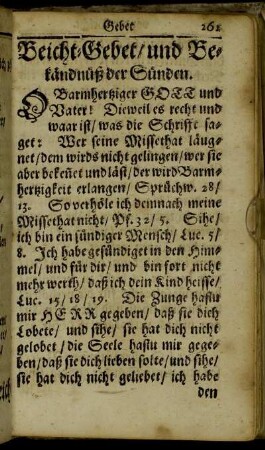 Gebet 261
Beicht-Gebet/ und Be-
kändnüß der Sünden.
O Barmhertziger GOTT und
Vater! Dieweil es recht und
waar ist/ was die Schrifft sa-
get: Wer seine Missethat läug-
net/dem wirds nicht gelingen/wer sie
aber bekeñet und läst/der wird Barm-
hertzigkeit erlangen/ Sprüchw. 28/
13. So verhöle ich demnach meine
Missethat nicht/ Ps. 32/ 5. Sihe/
ich bin ein sündiger Mensch/ Luc. 5/
8. Ich habe gesündiget in den Him-
mel/ und für dir/ und bin fort nicht
mehr werth/ daß ich dein Kind heisse/
Luc. 15/ 18/ 19. Die Zunge hastu
mir HERR gegeben/ daß sie dich
Lobete/ und sihe/ sie hat dich nicht
gelobet/ die Seele hastu mir gege-
ben/daß sie dich lieben solte/und sihe/
sie hat dich nicht geliebet/ ich habe
den